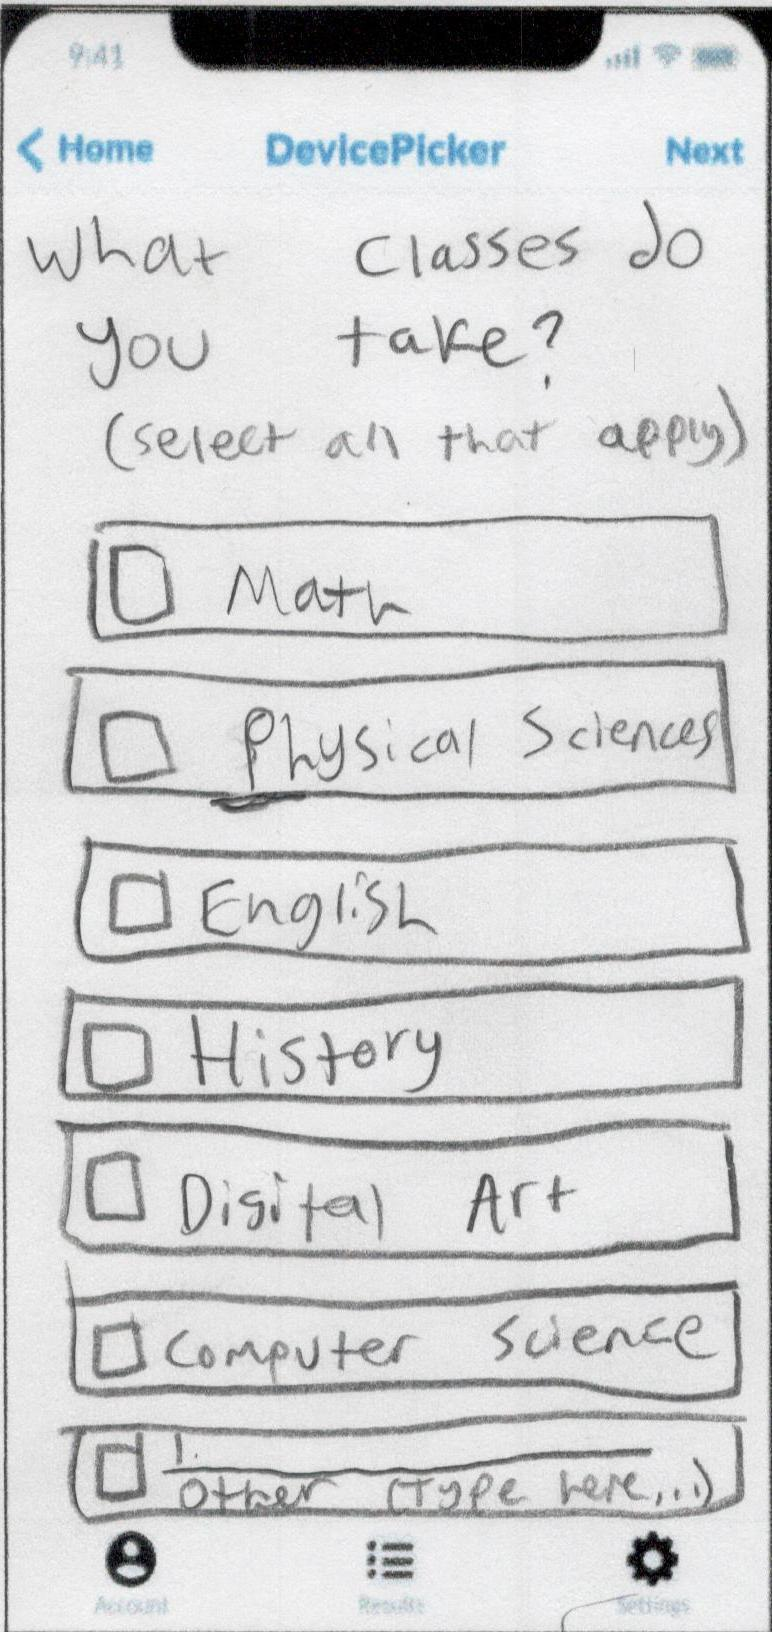 9:41
Home DevicePicker Next
What Classes do
you take?
(select all that apply)
Math
Physical Sciences
English
History
Digital Art
Computer Science
Other (Type here...)
Account Results Settings